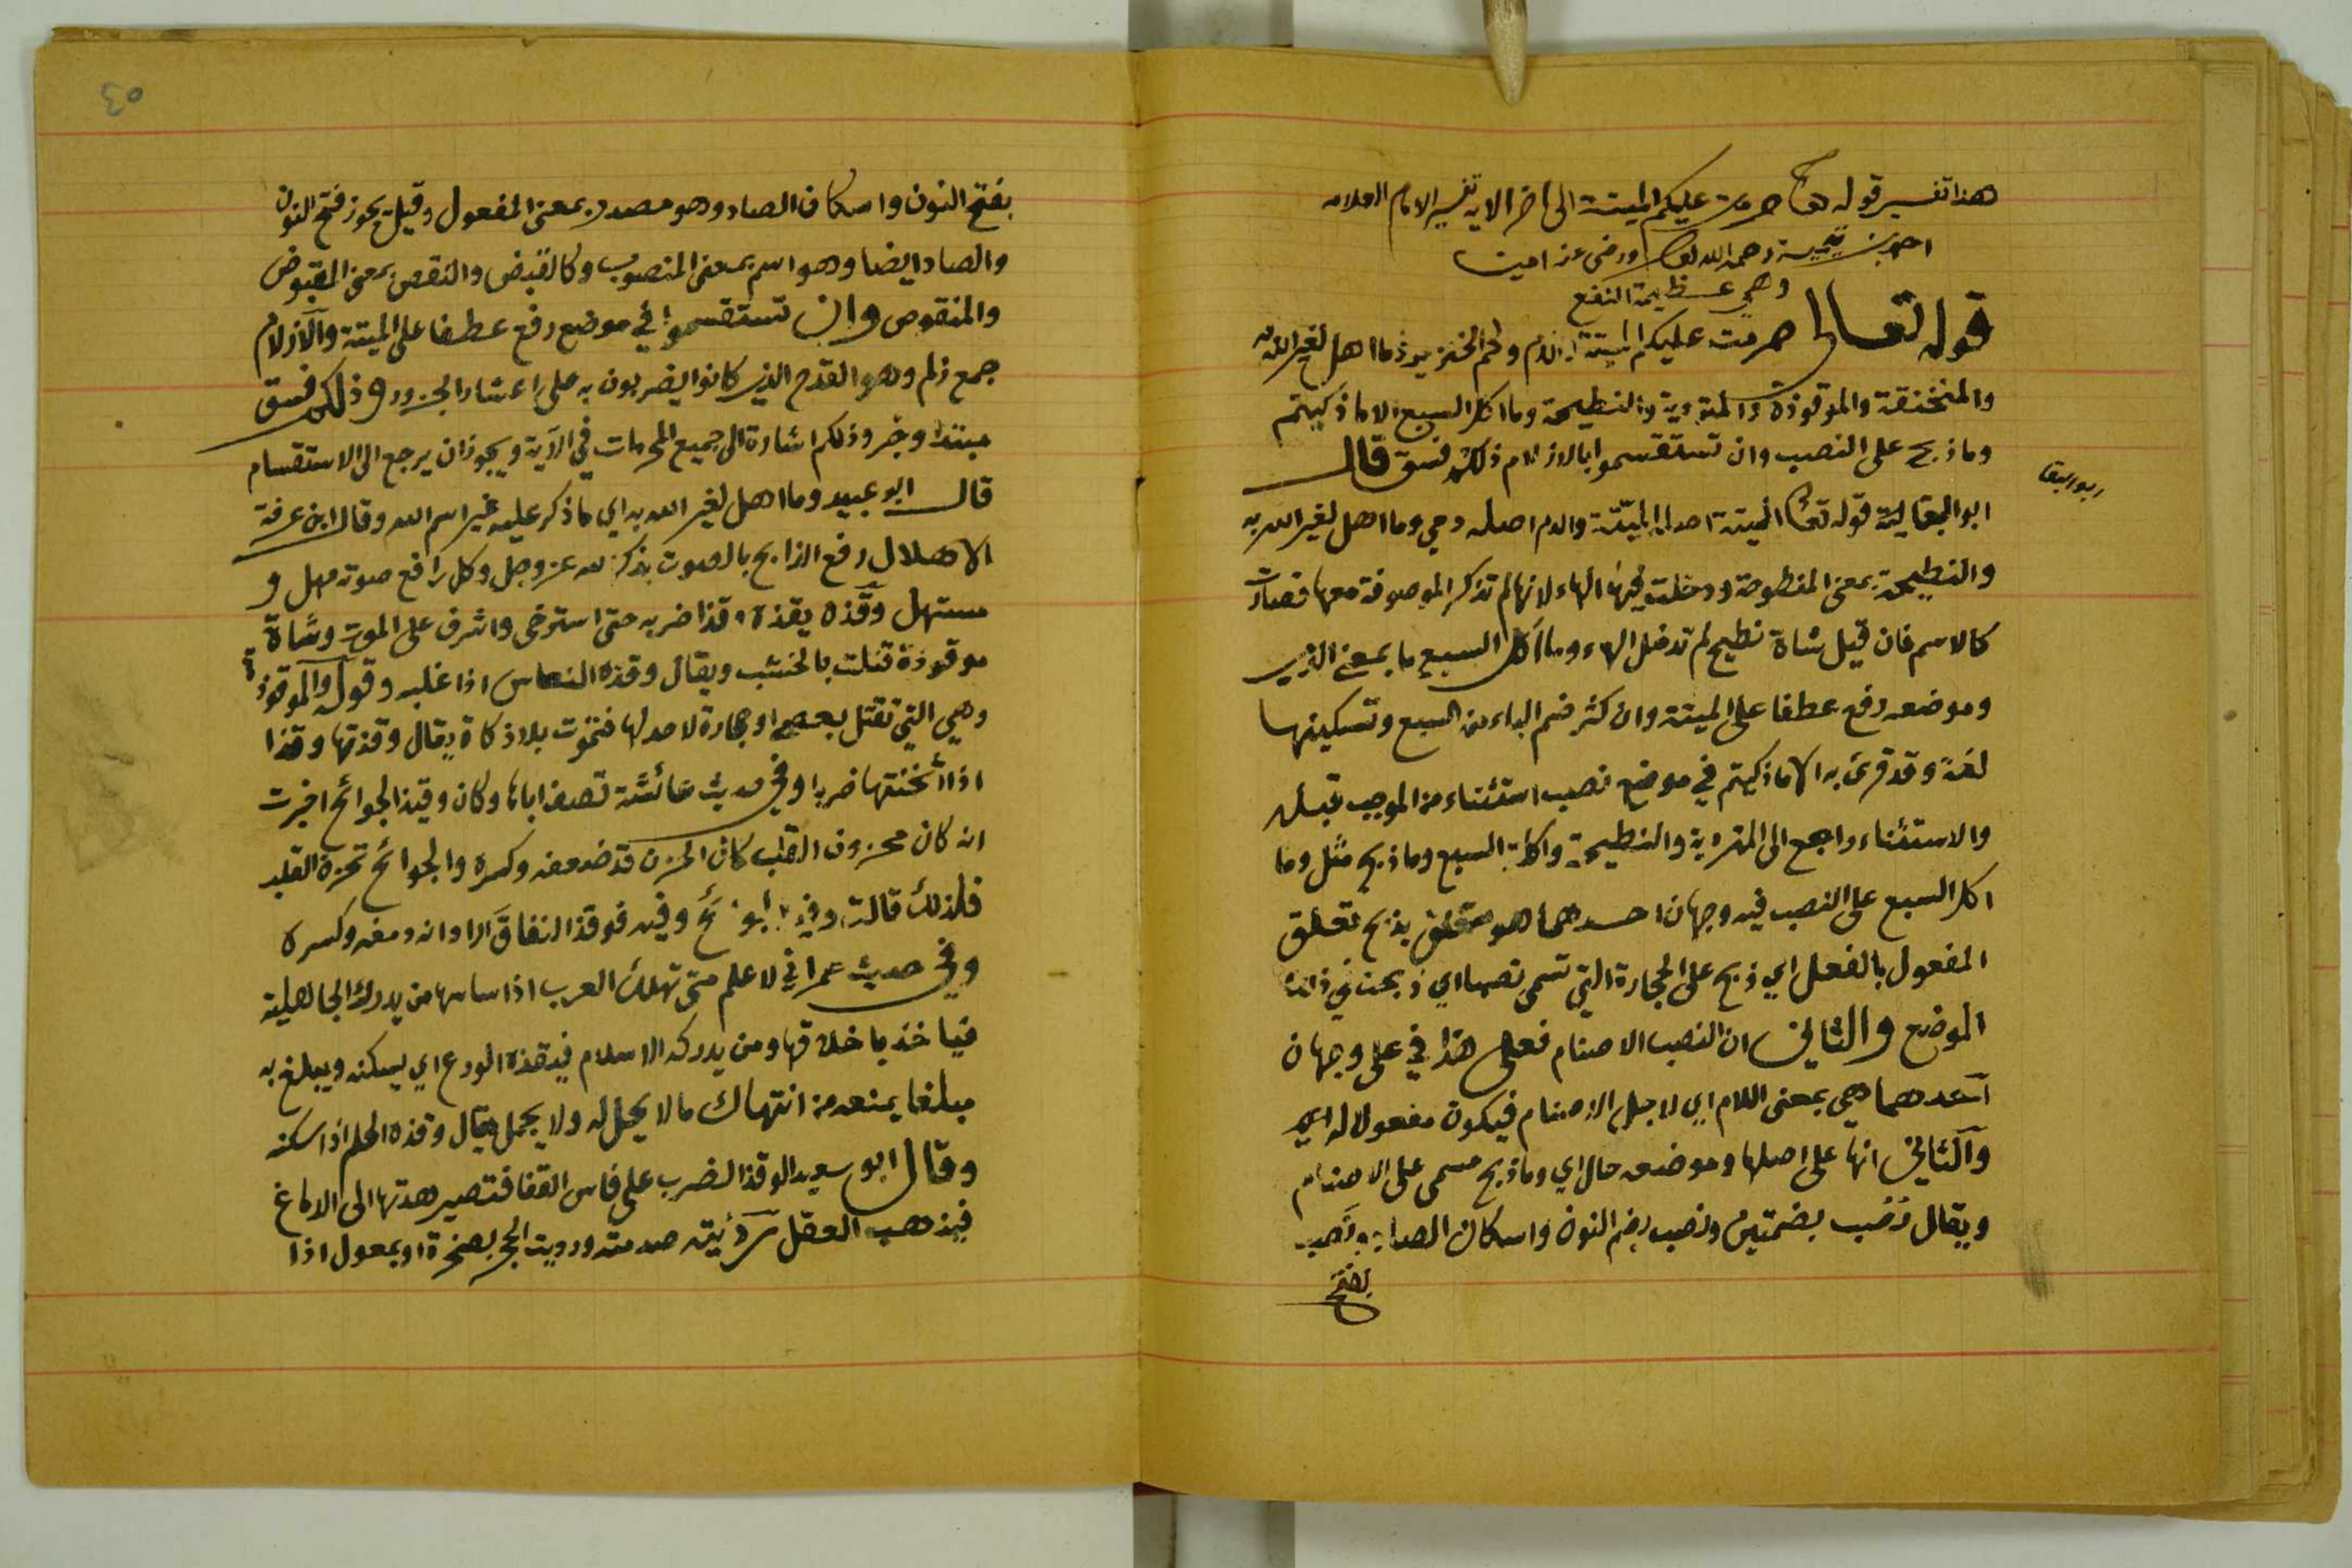 هذا تفسير قوله تعالى حرمت عليكم الميتة الى اخر الاية تفسير الامام العلامه
احمد بن تيمية رحمه الله تعالى ورضي عنه امين
وهي عظيمة النفع
قوله تعالى حرمت عليكم الميتة والدم ولحم الخنزير وما اهل لغير الله به
والمنخنقة والموقوذة والمتردية والنطيحة وما اكل السبع الا ما ذكيتم
وما ذبح على النصب وان تستقسموا بالازلام ذلكم فسق قال
ابو البقا
ابو البقا قوله تعالى الميتة اصلها الميّتة والدم اصله دمي وما اهل لغير الله به
والنطيحة بمعنى المنطوحة ودخلت فيها الهاء لانها لم تذكر الموصوفة معها فصارت
كالاسم فان قيل شاة نطيح لم تدخل الهاء وما اكل السبع ما بمعنى الذي
وموضعه رفع عطفا على الميتة وان كثر ضم الباء من السبع وتسكينها
لغة وقد قرئ به الا ما ذكيتم في موضع نصب استثناء من الموجب قبله
والاستثناء راجع الى المتردية والنطيحة واكلة السبع وما ذبح مثل وما
اكل السبع على النصب فيه وجهان احدهما هو متعلق بذبح تعلق
المفعول بالفعل اي ذبح على الحجارة التي تسمى نصبا اي ذبحت في ذلك
الموضع والثاني ان النصب الاصنام فعلى هذا في على وجهان
احدهما هي بمعنى اللام اي لاجل الاصنام فيكون مفعولا له اي
والثاني انها على اصلها وموضعه حال اي وما ذبح مسمى على الاصنام
ويقال نُصُب بضمتين ونصب بضم النون واسكان الصاد ونَصب
بفتح
٤٥
بفتح النون واسكان الصاد وهو مصدر بمعنى المفعول وقيل يجوز فتح النون
والصاد ايضا وهو اسم بمعنى المنصوب وكالقبض والنقص بمعنى المقبوض
والمنقوص وان تستقسموا في موضع رفع عطفا على الميتة والازلام
جمع زلم وهو القدح الذي كانوا يضربون به على اعشار الجزور وذلكم فسق
مبتدا وخبر وذلكم اشارة الى جميع المحرمات في الاية ويجوز ان يرجع الى الاستقسام
قال ابو عبيد وما اهل لغير الله به اي ما ذكر عليه غير اسم الله وقال ابن عرفة
الاهلال رفع الذابح بالصوت بذكر لله عز وجل وكل رافع صوته مهل و
مستهل وقّذه يقذه وقذا ضربه حتى استرخى واشرف على الموت وشاة
موقوذة قتلت بالخشب ويقال وقذه النعاس اذا غلبه وقوله والموقوذة
وهي التي تقتل بعصا او حجارة لا حد لها فتموت بلا ذكاة يقال وقذتها وقذا
اذا اثخنتها ضربا وفي حديث عائشة تصف اباها وكان وقيذ الجوانح اخبرت
انه كان محزون القلب كان الحزن قد ضعفه وكسره والجوانح تحزن القلب
فلذلك قالت وفيه فوقذ النفاق ارادانه دمغه وكسره
وفي حديث عمر اني لاعلم متى تهلك العرب اذا ساسها من يدرك الجاهلية
فياخذ باخلاقها ومن يدركه الاسلام فيقذه الورع اي يسكنه ويبلغ به
مبلغا يمنعه من انتهاك ما لا يحل له ولا يجمل يقال وقذه الحلم اذا سكنه
وقال ابو سعيد الوقذ الضرب على فاس القفا فتصير هدتها الى الدماغ
فيذهب العقل صدمته ورديت الحجر بصخرة او بمعول اذا